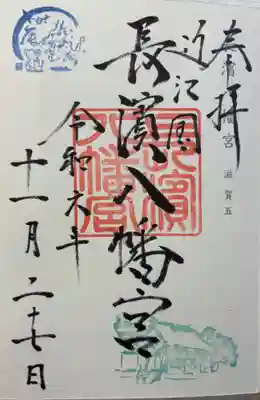 奉拝
長濱八幡宮 滋賀五
近江国
長濱八幡宮
長濱八幡宮
令和六年
十一月二十七日